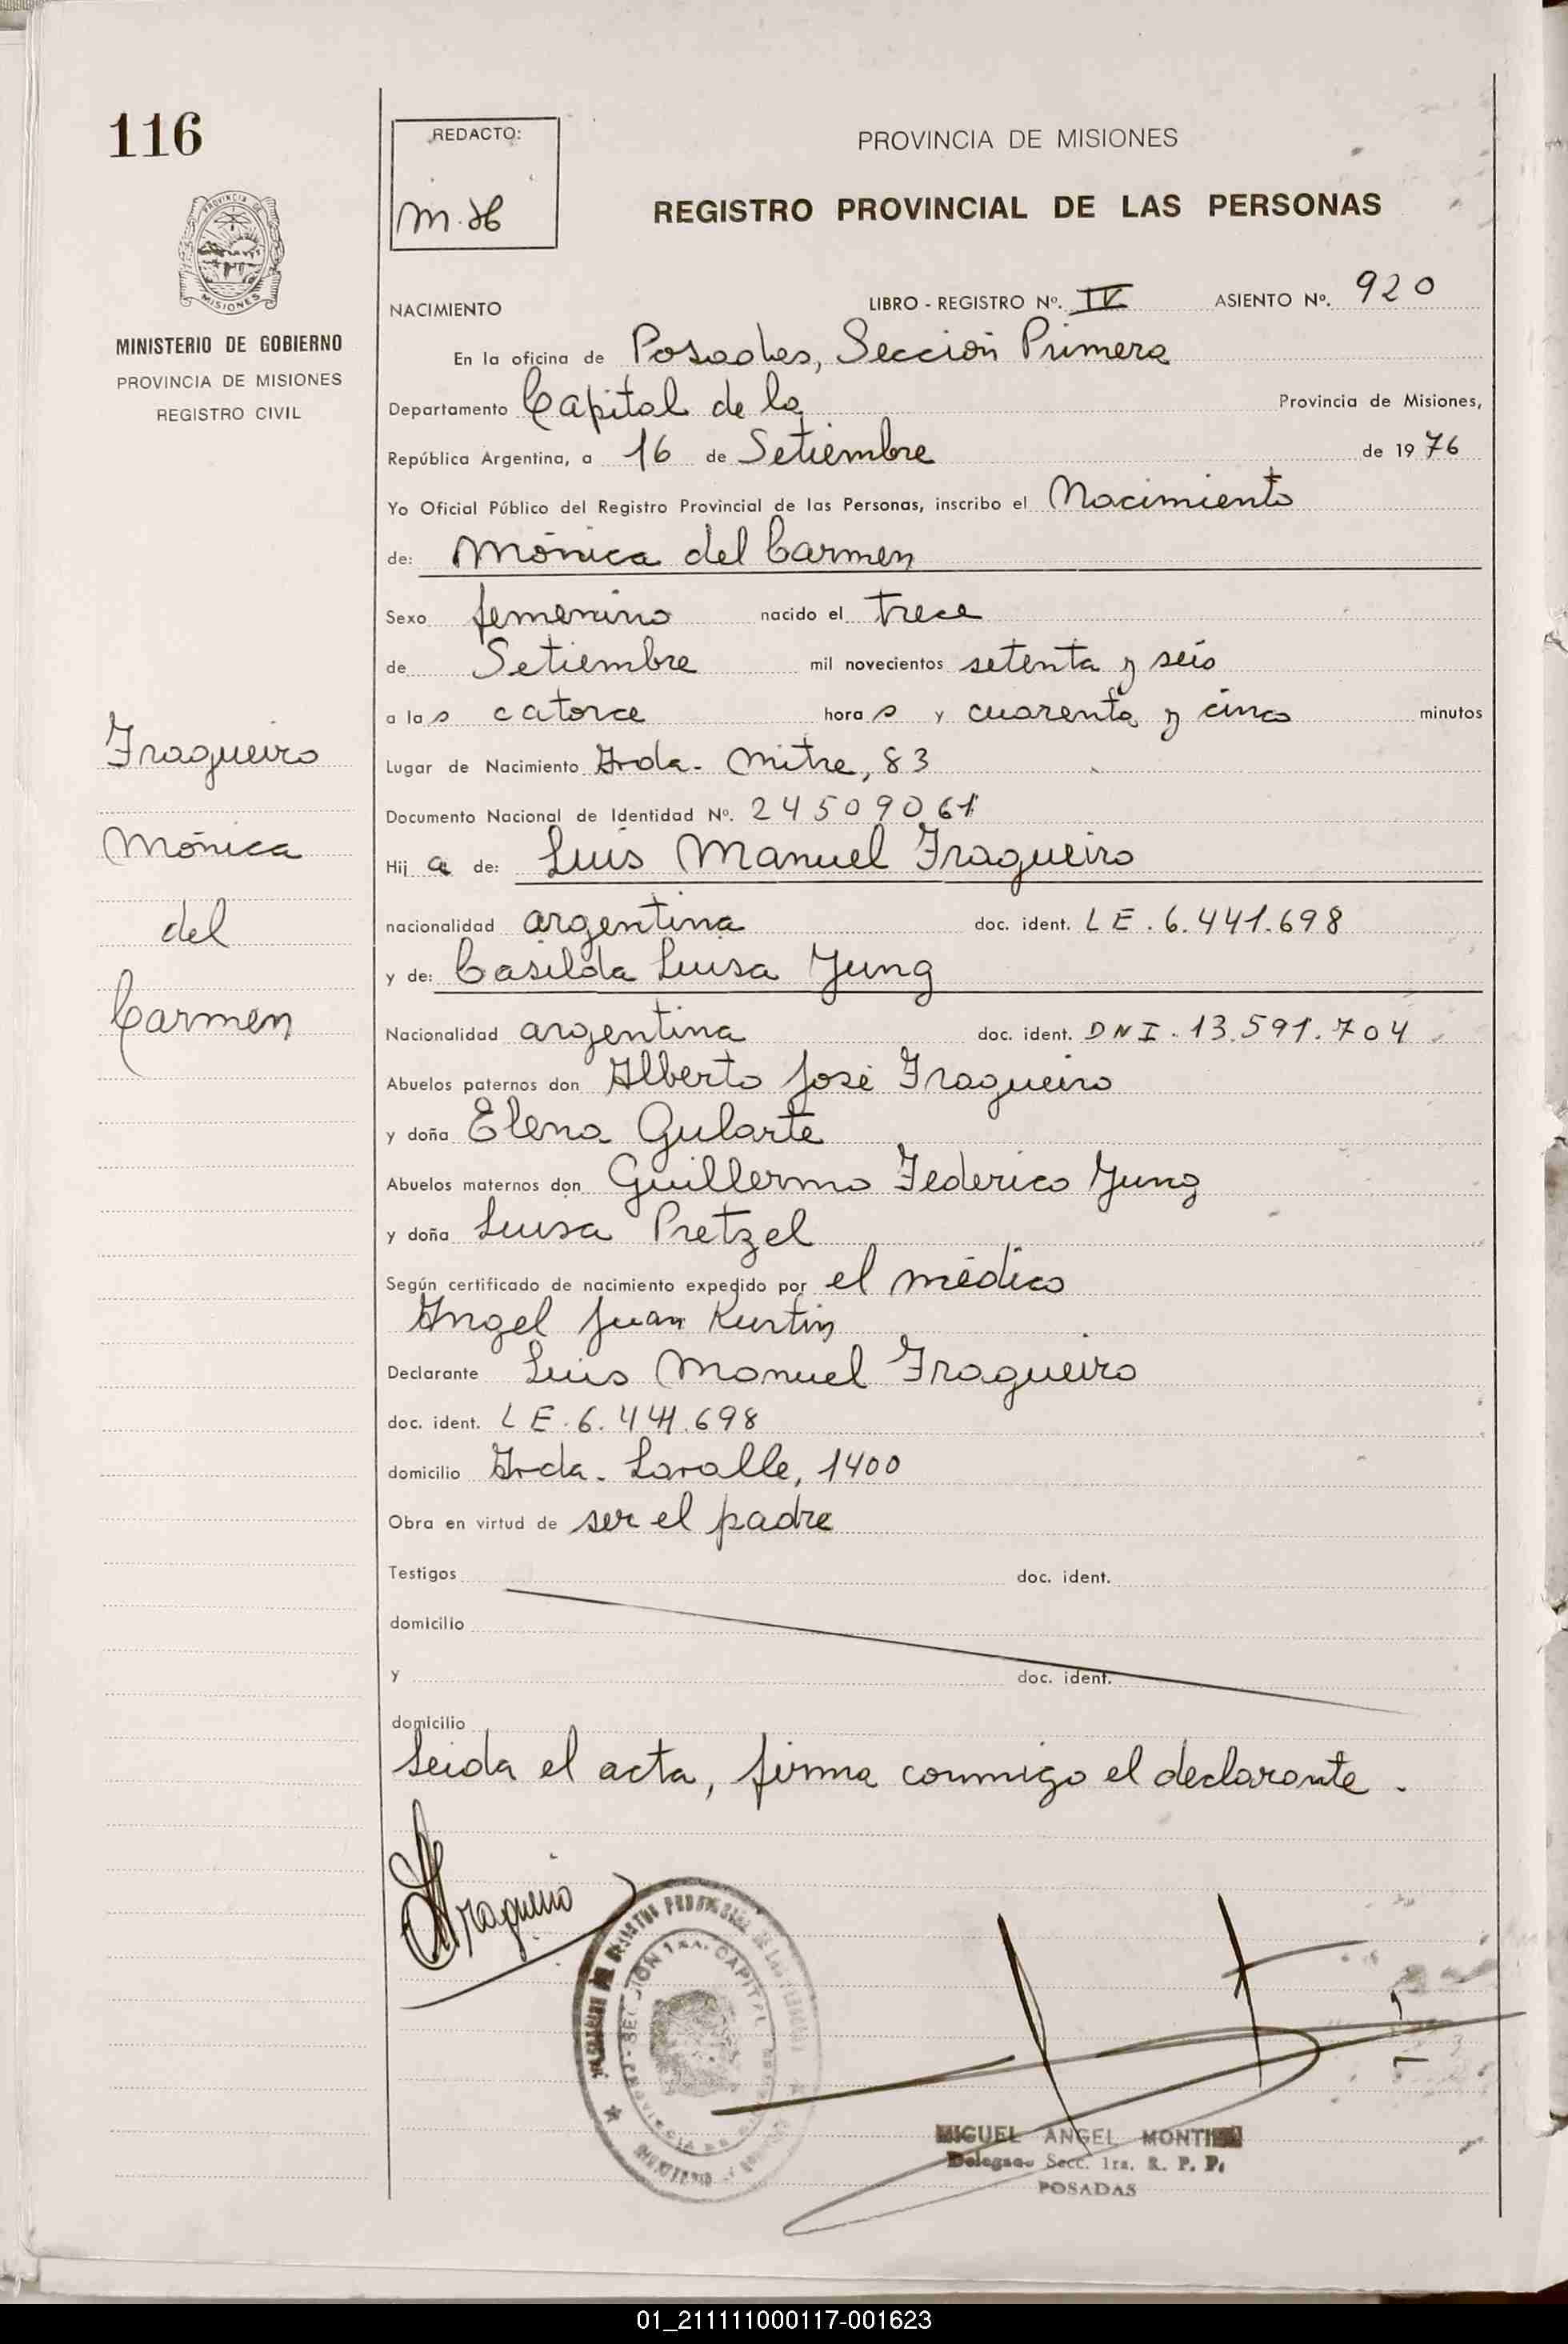 116
PROVINCIA DE
MISIONES
MINISTERIO DE GOBIERNO
PROVINCIA DE MISIONES
REGISTRO CIVIL
Fragueiro
Mónica
del
Carmen
REDACTO:
PROVINCIA DE MISIONES
REGISTRO PROVINCIAL DE LAS PERSONAS
NACIMIENTO LIBRO - REGISTRO Nº. IV ASIENTO Nº. 920
En la oficina de Posadas, Sección Primera
Departamento Capital de la Provincia de Misiones,
República Argentina, a 16 de Setiembre de 1976
Yo Oficial Público del Registro Provincial de las Personas, inscribo el Nacimiento
de: Mónica del Carmen
Sexo femenino nacido el trece
de Setiembre mil novecientos setenta y seis
a las catorce horas y cuarenta y cinco minutos
Lugar de Nacimiento Avda. Mitre, 83
Documento Nacional de Identidad Nº. 24509061
Hija de: Luis Manuel Fragueiro
nacionalidad argentina doc. ident. LE. 6.441.698
y de: Casilda Luisa Jung
Nacionalidad argentina doc. ident. DNI. 13.591.704
Abuelos paternos don Alberto José Fragueiro
y doña Elena Gularte
Abuelos maternos don Guillermo Federico Jung
y doña Luisa Pretzel
Según certificado de nacimiento expedido por el médico
Angel Juan Kurtin
Declarante Luis Manuel Fragueiro
doc. ident. LE. 6.441.698
domicilio Avda. Lavalle, 1400
Obra en virtud de ser el padre
Testigos doc. ident.
domicilio
y doc. ident.
domicilio
Leida el acta, firma conmigo el declarante.
Fragueiro
MIGUEL ANGEL
Secc. 1ra. R. P. P.
POSADAS
01_211111000117-001623